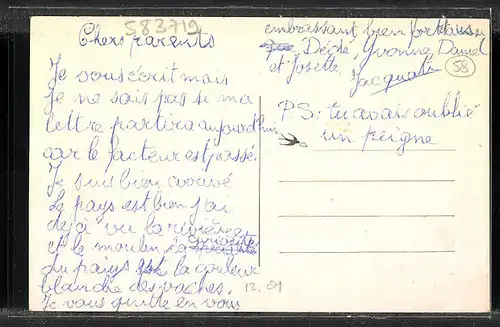 583719
Chers parents
Je vous écrit mais
Je ne sais pas si ma
lettre partira aujourdhui
car le facteur est passé.
Je suis bien arrivé
Le pays est bien j'ai
déjà vu la rivière
et le moulin la curiosité
du pays est la couleur
blanche des vaches.
Je vous quitte en vous
12.01
embrassant bien fort
Dédé, Yvonne, Daniel
et Josette.
Jacquot
58
P.S: tu avais oublié
un peigne